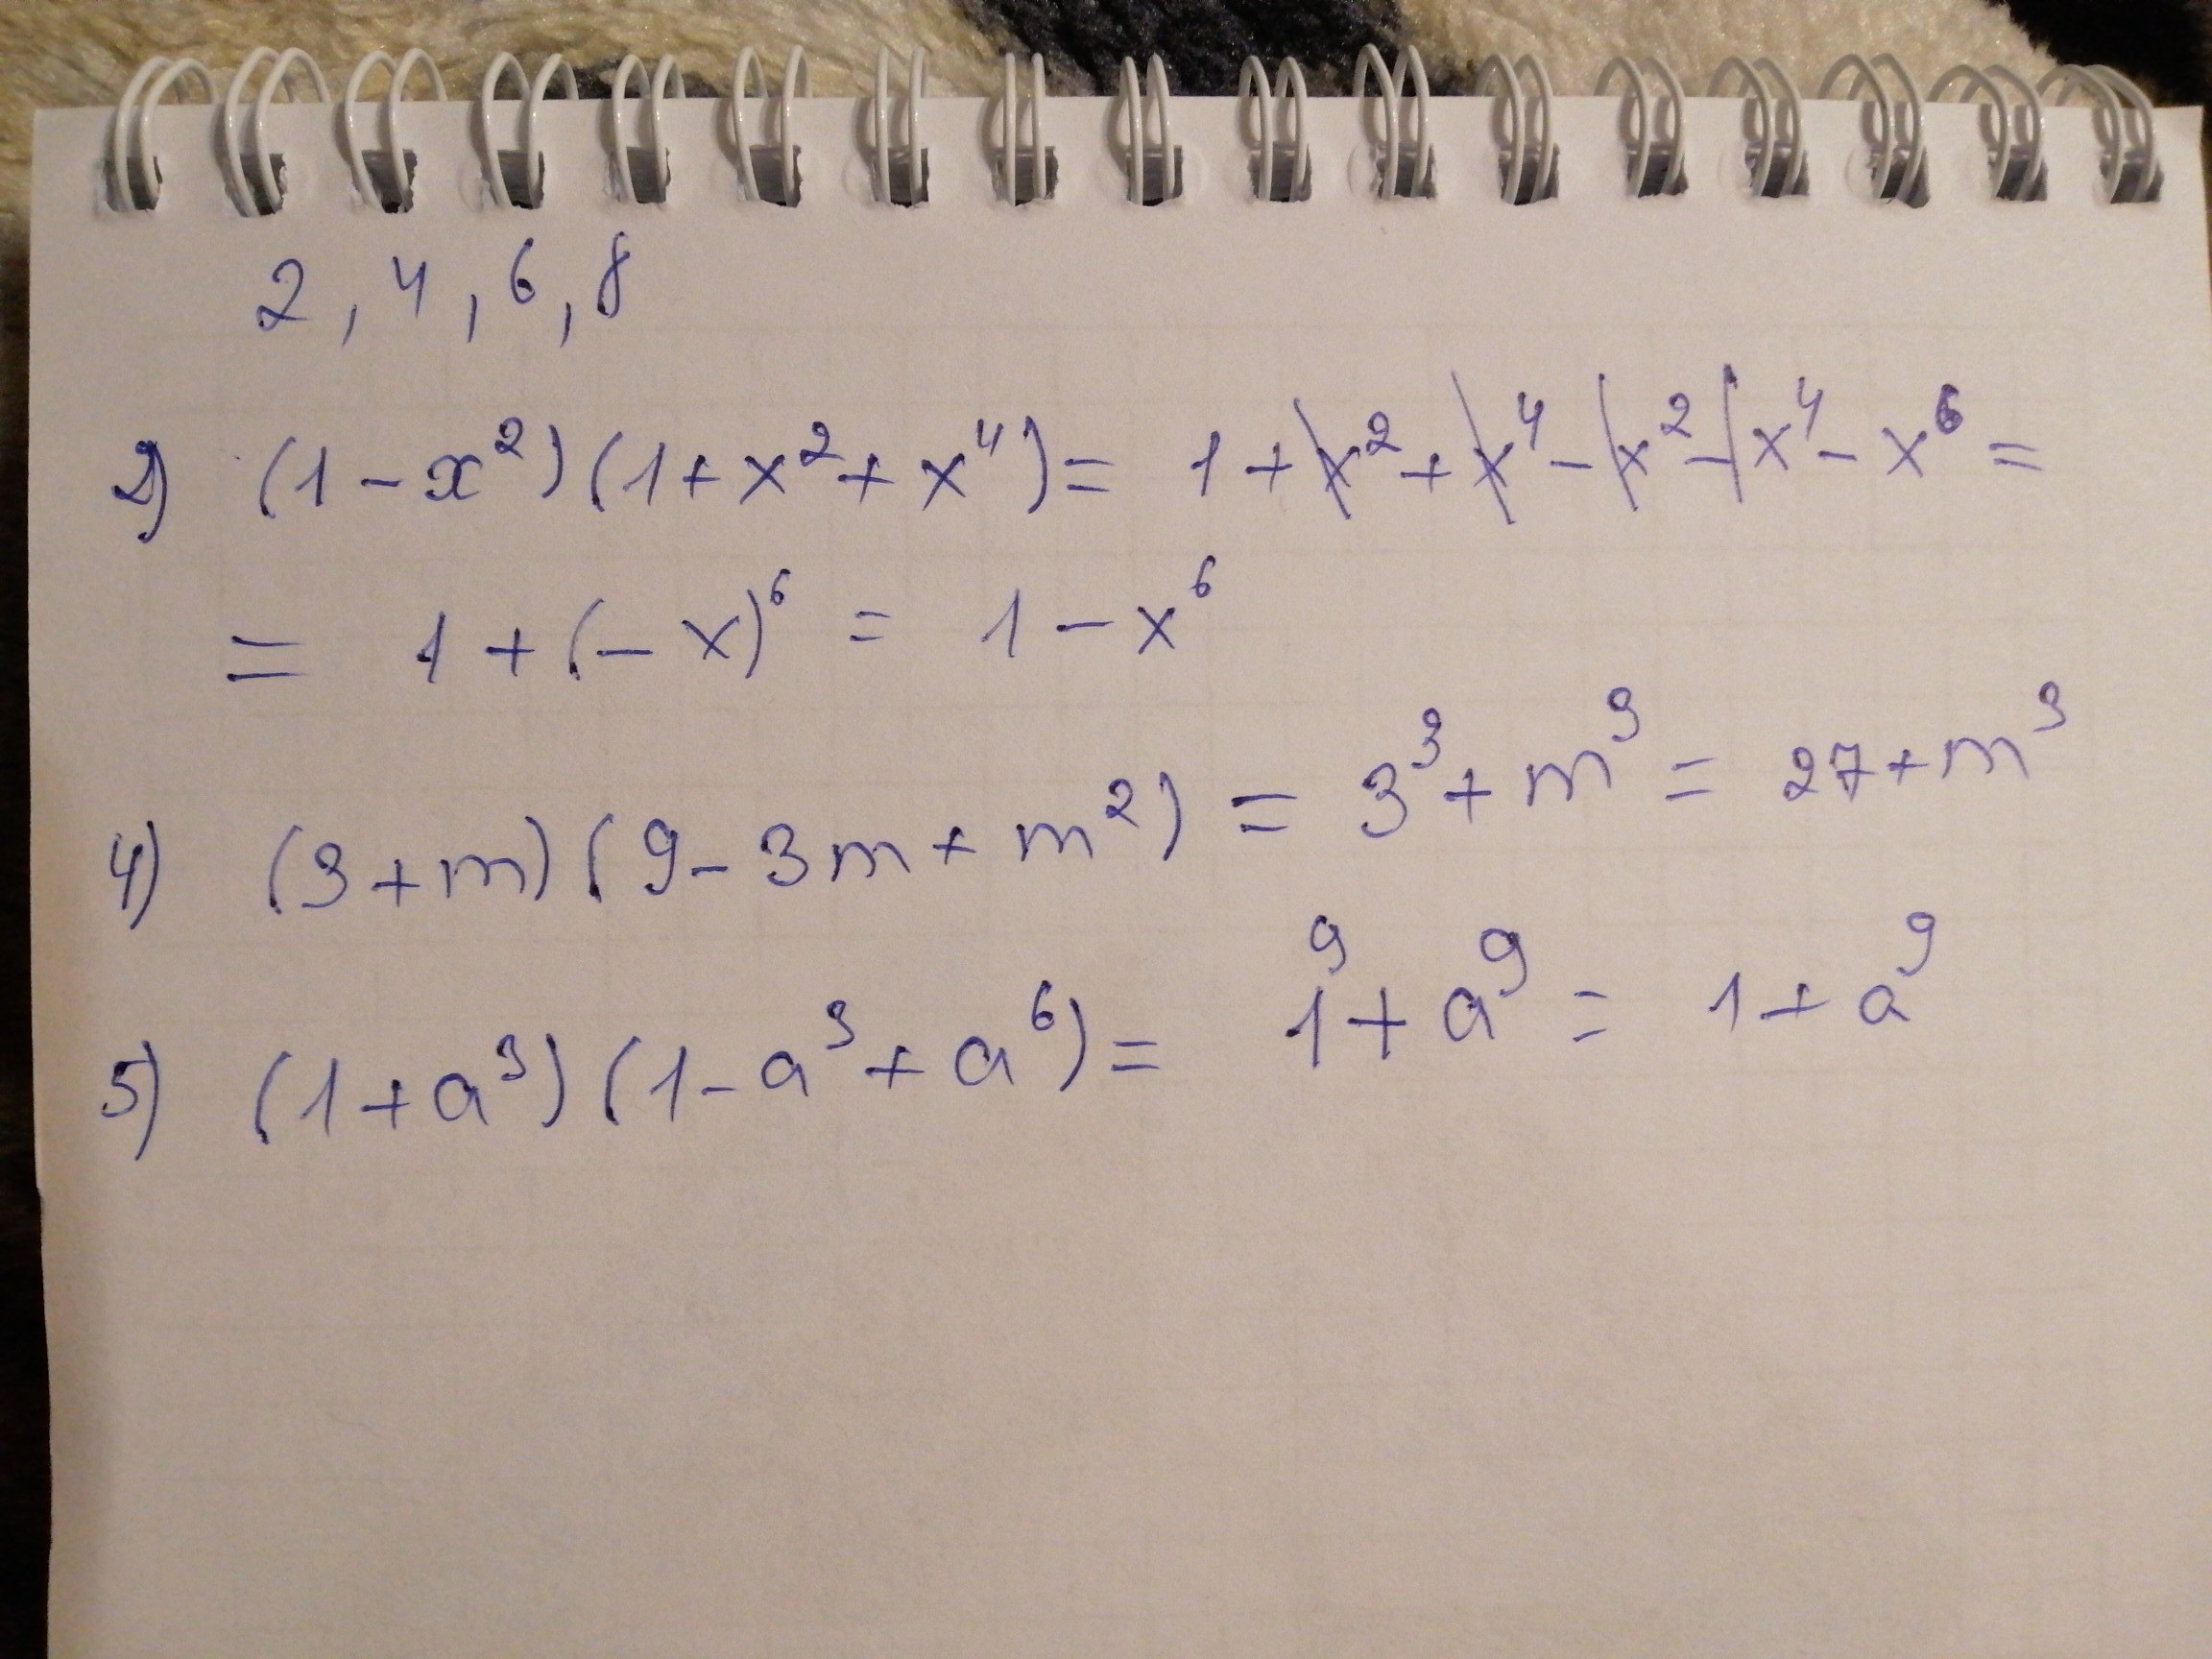 2, 4, 6, 8
2) (1 - x²)(1 + x² + x⁴) = 1 + x² + x⁴ - x² - x⁴ - x⁶ =
= 1 + (- x)⁶ = 1 - x⁶
4) (3 + m)(9 - 3m + m²) = 3³ + m³ = 27 + m³
5) (1 + a³)(1 - a³ + a⁶) = 1⁹ + a⁹ = 1 + a⁹